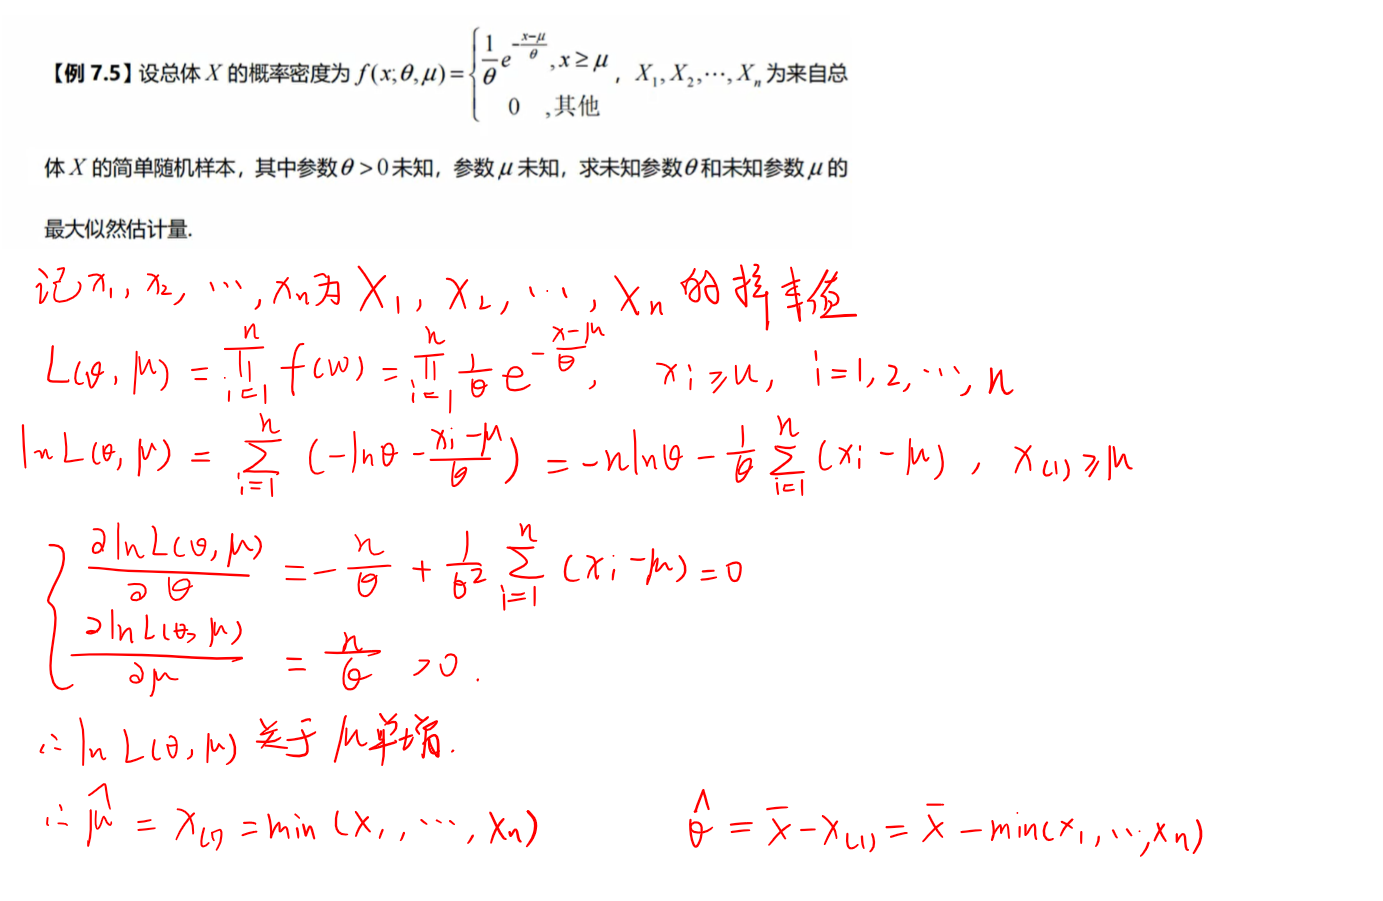 【例 7.5】设总体 X 的概率密度为 f(x;θ,μ)={ 1/θ e^{-(x-μ)/θ} ,x≥μ ， X₁,X₂,⋯,Xₙ 为来自总
0 ,其他
体 X 的简单随机样本，其中参数θ>0未知，参数μ未知，求未知参数θ和未知参数μ的
最大似然估计量.
记 x₁, x₂, ⋯, xₙ 为 X₁, X₂, ⋯, Xₙ 的样本值
L(θ, μ) = ∏_{i=1}^{n} f(w) = ∏_{i=1}^{n} 1/θ e^{-(x-μ)/θ}, xᵢ≥μ, i=1,2,⋯,n
ln L(θ, μ) = ∑_{i=1}^{n} (-lnθ - (xᵢ-μ)/θ) = -nlnθ - 1/θ ∑_{i=1}^{n} (xᵢ-μ), x₍₁₎≥μ
{ ∂lnL(θ, μ)/∂θ = -n/θ + 1/θ² ∑_{i=1}^{n} (xᵢ-μ) = 0
∂lnL(θ, μ)/∂μ = n/θ >0.
∴ ln L(θ, μ) 关于 μ 单增.
∴ μ̂ = x₍₁₎ = min(x₁, ⋯, xₙ) θ̂ = x̄ - x₍₁₎ = x̄ - min(x₁, ⋯, xₙ)